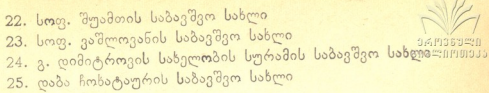 22. სოფ. შუამთის საბავშვო სახლი
23. სოფ. ვაშლოვანის საბავშვო სახლი
24. გ. დიმიტროვის სახელობის სურამის საბავშვო სახლი
25. დაბა ჩოხატაურის საბავშვო სახლი
ეროვნული